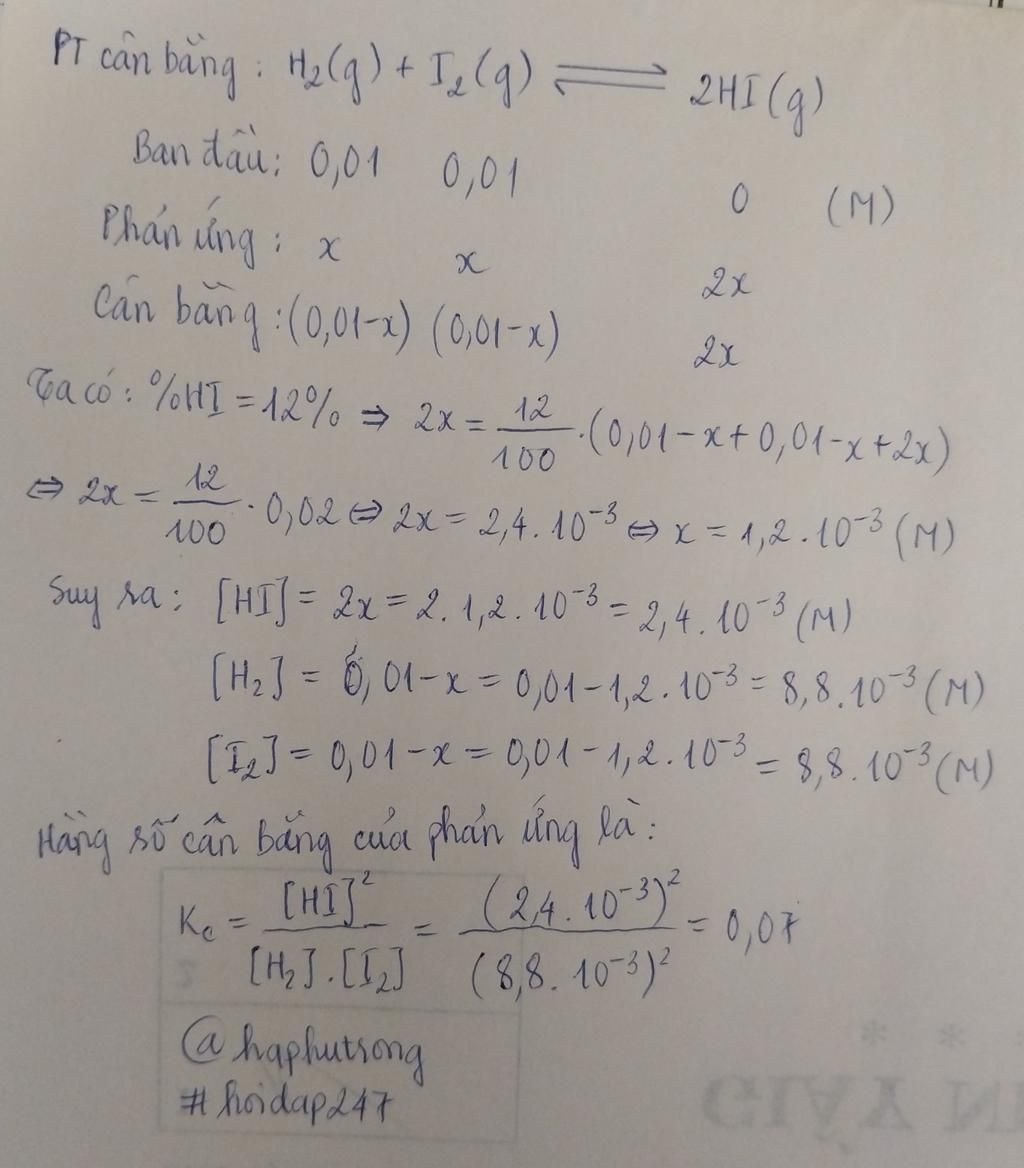 PT cân bằng : H₂(g) + I₂(g) ⇌ 2HI(g)
Ban đầu: 0,01 0,01 0 (M)
Phản ứng : x x 2x
Cân bằng : (0,01-x) (0,01-x) 2x
Ta có: %HI = 12% ⇒ 2x = 12/100 . (0,01-x+0,01-x+2x)
⇔ 2x = 12/100 . 0,02 ⇔ 2x = 2,4.10⁻³ ⇔ x = 1,2.10⁻³ (M)
Suy ra: [HI] = 2x = 2.1,2.10⁻³ = 2,4.10⁻³ (M)
[H₂] = 0,01-x = 0,01-1,2.10⁻³ = 8,8.10⁻³ (M)
[I₂] = 0,01-x = 0,01-1,2.10⁻³ = 8,8.10⁻³ (M)
Hằng số cân bằng của phản ứng là:
K_c = [HI]² / [H₂].[I₂] = (2,4.10⁻³)² / (8,8.10⁻³)² = 0,07
@haphutrong
#hoidap247
GIẤY